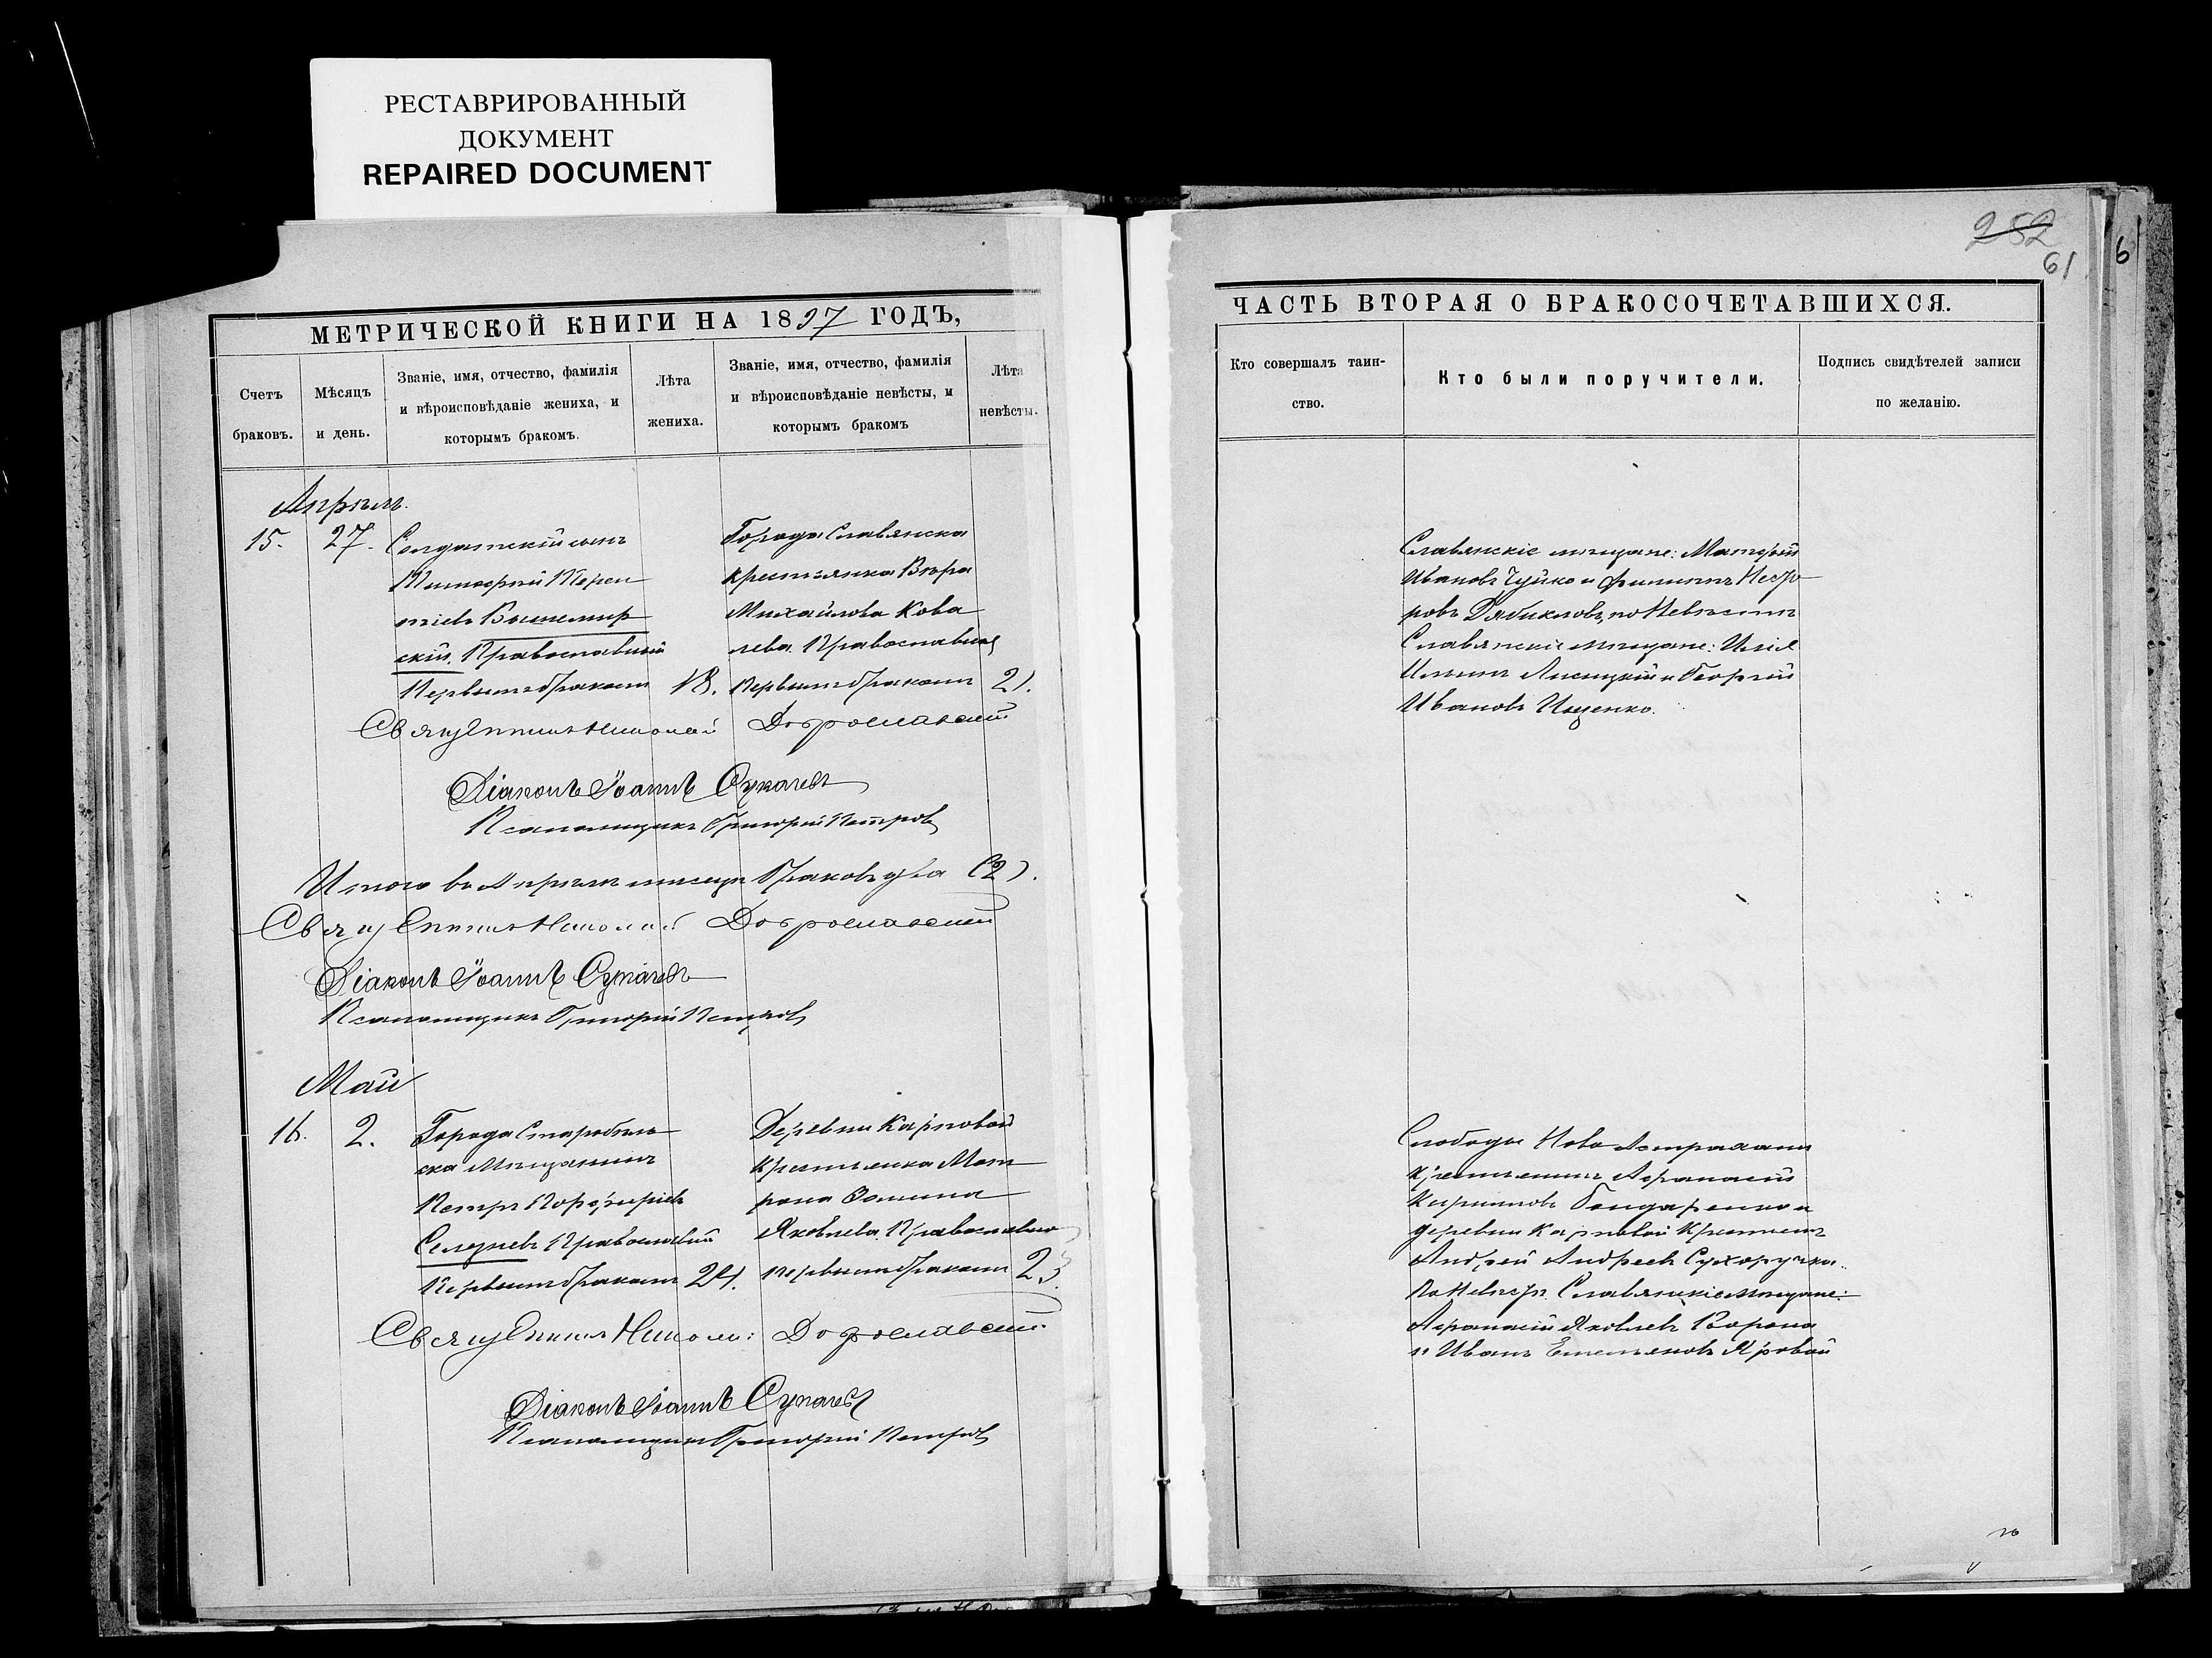 РЕСТАВРИРОВАННЫЙ
ДОКУМЕНТ
REPAIRED DOCUMENT
252
61
6
МЕТРИЧЕСКОЙ КНИГИ НА 1897 ГОДЪ,
Счетъ браковъ.
Мѣсяцъ и день.
Званіе, имя, отчество, фамилія
и вѣроисповѣданіе жениха, и
которымъ бракомъ.
Лѣта жениха.
Званіе, имя, отчество, фамилія
и вѣроисповѣданіе невѣсты, и
которымъ бракомъ
Лѣта невѣсты.
Апрѣль.
15. 27. Солдатскій сынъ
Тимофей Терен
тіевъ Вышемир
скій. Православный
Первымъ бракомъ 18.
Города Славянска
крестьянка Вѣра
Михайлова Кова
лева. Православная
Первымъ бракомъ 21.
Священникъ Николай Доброславскій
Діаконъ Іоаннъ Сукачевъ
Псаломщикъ Григорій Петровъ
Итого въ Апрѣлѣ мѣсяцѣ браковъ два (2).
Священникъ Николай Доброславскій
Діаконъ Іоаннъ Сукачевъ
Псаломщикъ Григорій Петровъ
Май
16. 2. Города Старобѣль
ска Мѣщанинъ
Петръ Порфиріевъ
Селезневъ Православный
Первымъ бракомъ 24.
Деревни Карповой
крестьянка Мат
рона Фомина
Яковлева. Православная
Первымъ бракомъ 23.
Священникъ Николай Доброславскій
Діаконъ Іоаннъ Сукачевъ
Псаломщикъ Григорій Петровъ
ЧАСТЬ ВТОРАЯ О БРАКОСОЧЕТАВШИХСЯ.
Кто совершалъ таин-
ство.
Кто были поручители.
Подпись свидѣтелей записи
по желанію.
Славянскіе мѣщане: Матфей
Ивановъ Чуйко и Филиппъ
по Невѣстѣ
Славянскіе мѣщане: Илія
Ильинъ Лисицкій и Георгій
Ивановъ Ищенко.
Слободы Ново Астрахани
крестьянинъ Афанасій
Кирилловъ Бондаренко и
деревни Карповой Крестьян
Андрей Андреевъ Сухоручко.
По Невѣстѣ Славянскіе мѣщане:
Афанасій Яковлевъ Ворона
и Иванъ Емельяновъ Яровой